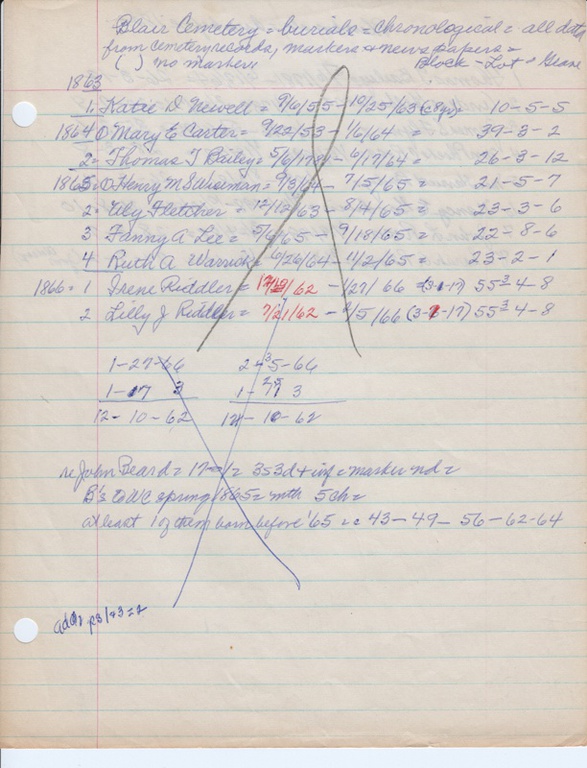 Blair Cemetery = burials = chronological = all data
from cemetery records, markers & newspapers =
( ) no markers Block - Lot - Grave
1863
1. Katie D Newell = 9/6/55 - 10/25/63 10-5-5
1864 Mary E Carter = 9/22/53 - 1/6/64 = 39-3-2
2 = Thomas T Bailey = 26-3-12
1865 Henry M = 9/3/64 - 7/5/65 = 21-5-7
2. Fletcher = 12/12/63 - 8/4/65 = 23-3-6
3 Fanny A Lee = 5/6/65 - 9/18/65 = 22-8-6
4 Ruth A = 6/26/64 - 11/2/65 = 23-2-1
1866 = 1 Irene Riddler = /62 - 1/27/66 (3-1-17) 55 4-8
2 Lilly J Riddler = 7/21/62 - 2/5/66 55 4-8
1-27-66 2-5-66
1-17 3
12-10-62 -62
re John Beard = marker nd =
B's to WC spring 1865 = with 5 ch =
at least 1 of them born before '65 = 43-49-56-62-64